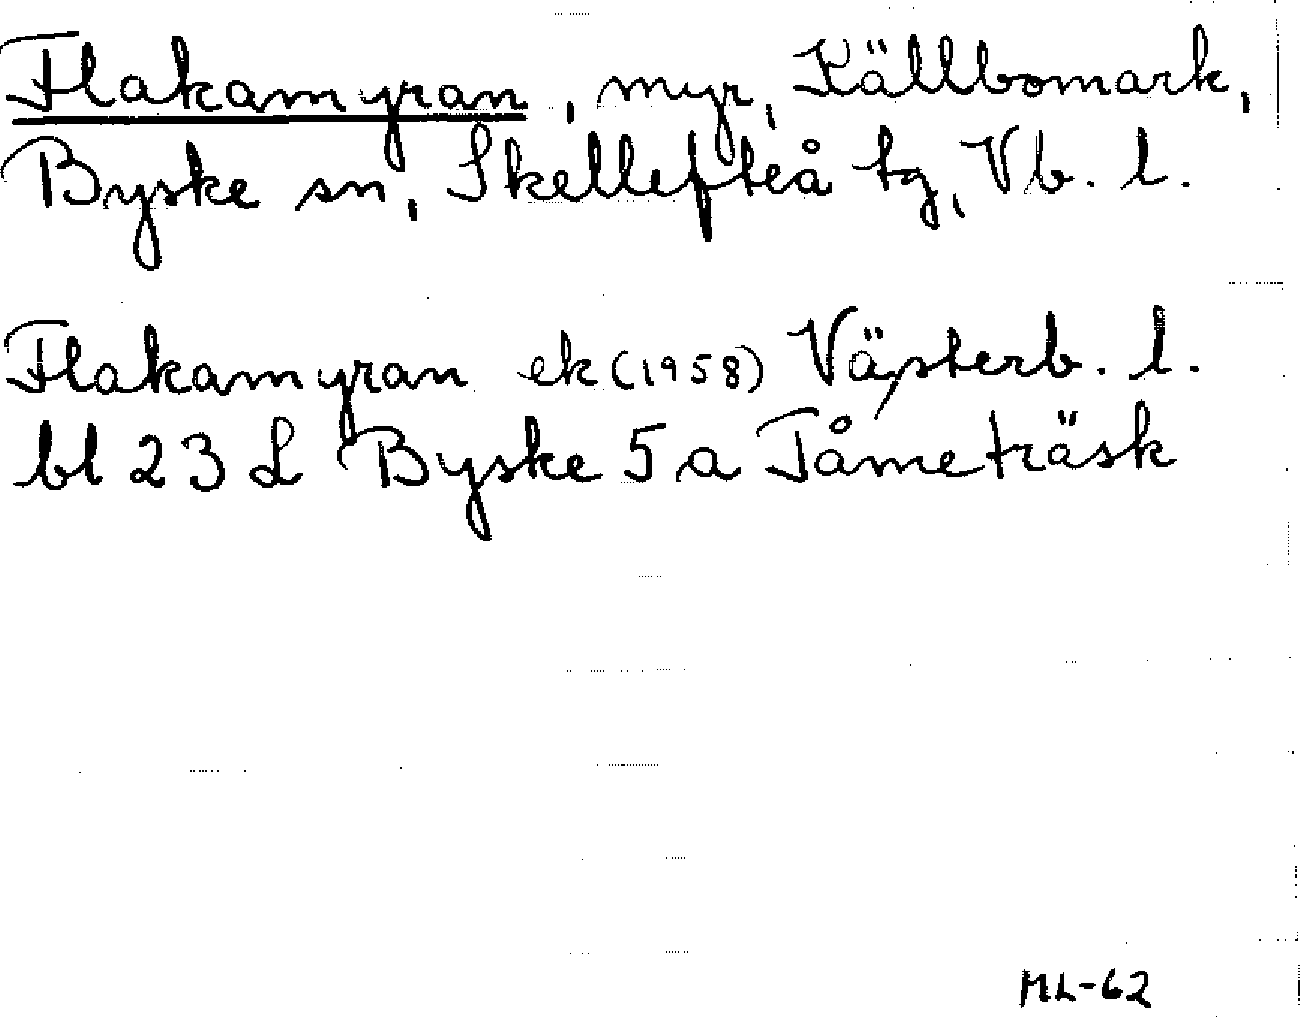 Flakamyran, myr, Källbomark,
Byske sn, Skellefteå tg, Vb. l.
Flakamyran ek (1958) Västerb. l.
bl 23 L Byske 5 a Tåmeträsk
ML-62